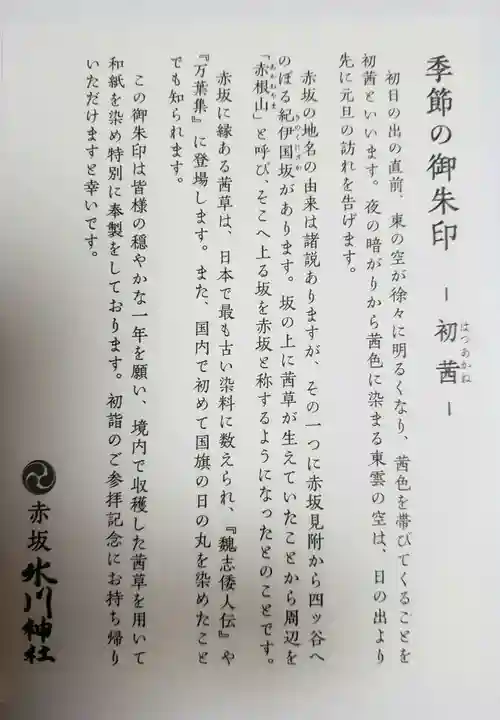 季節の御朱印 ー初茜ー
はつあかね
初日の出の直前、東の空が徐々に明るくなり、茜色を帯びてくることを
初茜といいます。夜の暗がりから茜色に染まる東雲の空は、日の出より
先に元旦の訪れを告げます。
赤坂の地名の由来は諸説ありますが、その一つに赤坂見附から四ッ谷へ
のぼる紀伊国坂があります。坂の上に茜草が生えていたことから周辺を
きのくにざか
「赤根山」と呼び、そこへ上る坂を赤坂と称するようになったとのことです。
あかねやま
赤坂に縁ある茜草は、日本で最も古い染料に数えられ、『魏志倭人伝』や
『万葉集』に登場します。また、国内で初めて国旗の日の丸を染めたこと
でも知られます。
この御朱印は皆様の穏やかな一年を願い、境内で収穫した茜草を用いて
和紙を染め特別に奉製をしております。初詣のご参拝記念にお持ち帰り
いただけますと幸いです。
赤坂氷川神社